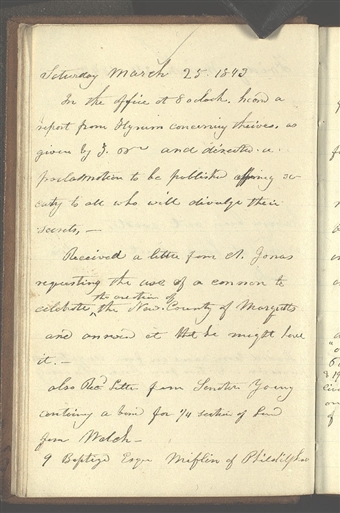 Saturday March 25 1843
In the office at 8 oclock. heard a
report from Hyrum concerning theives, as
given by Z. and directed a
proclamation to be published offering se-
curity to all who will divulge their
secrets, —
Received a letter from A. Jonas
requesting the use of a cannon to
celebrate the creation of the New County of Marquette
and answered that he might have
it. —
also Recd Letter from Senator Young
containing a bond for 1/4 section of Land
from Walsh —
9 Baptized Esqr Mifflin of Philadelphia